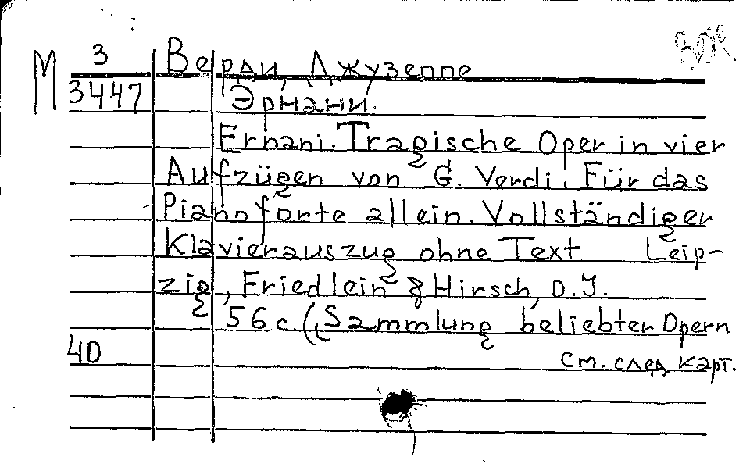 М 3 Верди, Джузеппе
3447 Эрнани.
Ernani. Tragische Oper in vier
Aufzügen von G. Verdi. Für das
Pianoforte allein. Vollständiger
Klavierauszug ohne Text Leip-
zig, Friedlein & Hirsch, o. J.
56 c (Sammlung beliebter Opern
40 см. след карт.